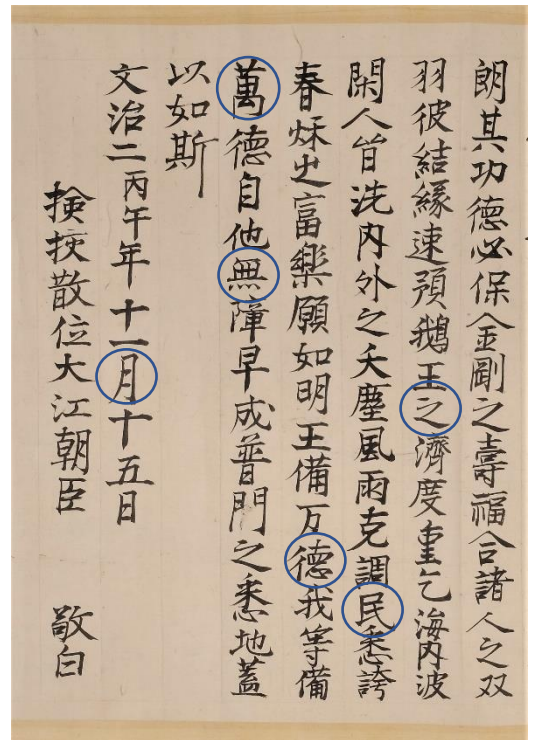 朗其功德必保金剛之壽福合諸人之双
羽彼結緣速預鵝王之濟度重乞海内波
閑人皆洗内外之夭塵風雨克調民悉誇
春秌之富樂願如明王備万德我等備
萬德自他無障早成普門之悉地蓋
以如斯
文治二丙午年十一月十五日
撿挍散位大江朝臣 敬白